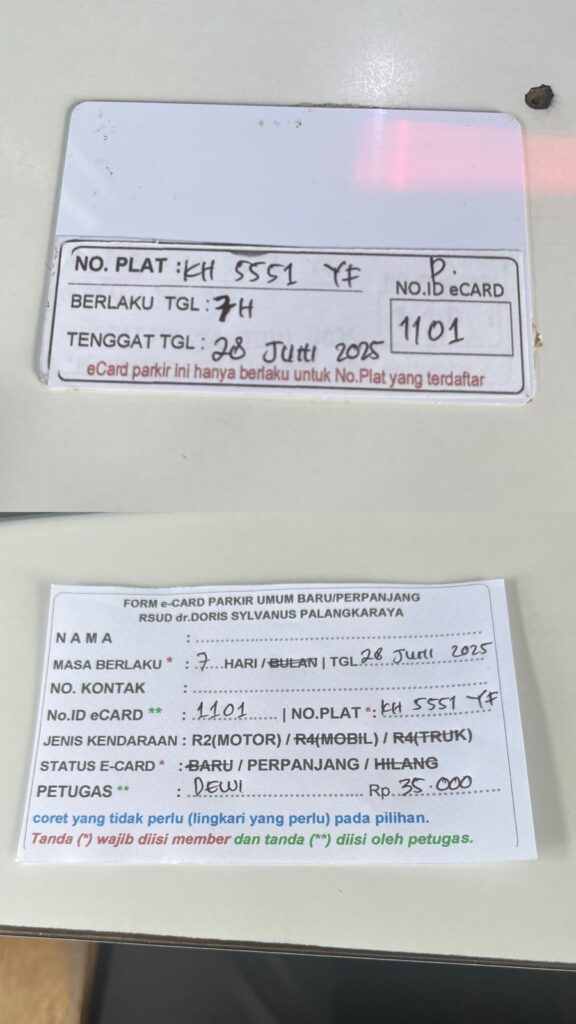 NO. PLAT : KH 5551 YF
P.
NO.ID eCARD
BERLAKU TGL : 7H
1101
TENGGAT TGL : 28 Juni 2025
eCard parkir ini hanya berlaku untuk No.Plat yang terdaftar
FORM e-CARD PARKIR UMUM BARU/PERPANJANG
RSUD dr.DORIS SYLVANUS PALANGKARAYA
NAMA :
MASA BERLAKU * : 7 HARI / BULAN | TGL 28 Juni 2025
NO. KONTAK :
No.ID eCARD ** : 1101 | NO.PLAT *: KH 5551 YF
JENIS KENDARAAN : R2(MOTOR) / R4(MOBIL) / R4(TRUK)
STATUS E-CARD * : BARU / PERPANJANG / HILANG
PETUGAS ** : DEWI Rp. 35.000
coret yang tidak perlu (lingkari yang perlu) pada pilihan.
Tanda (*) wajib diisi member dan tanda (**) diisi oleh petugas.